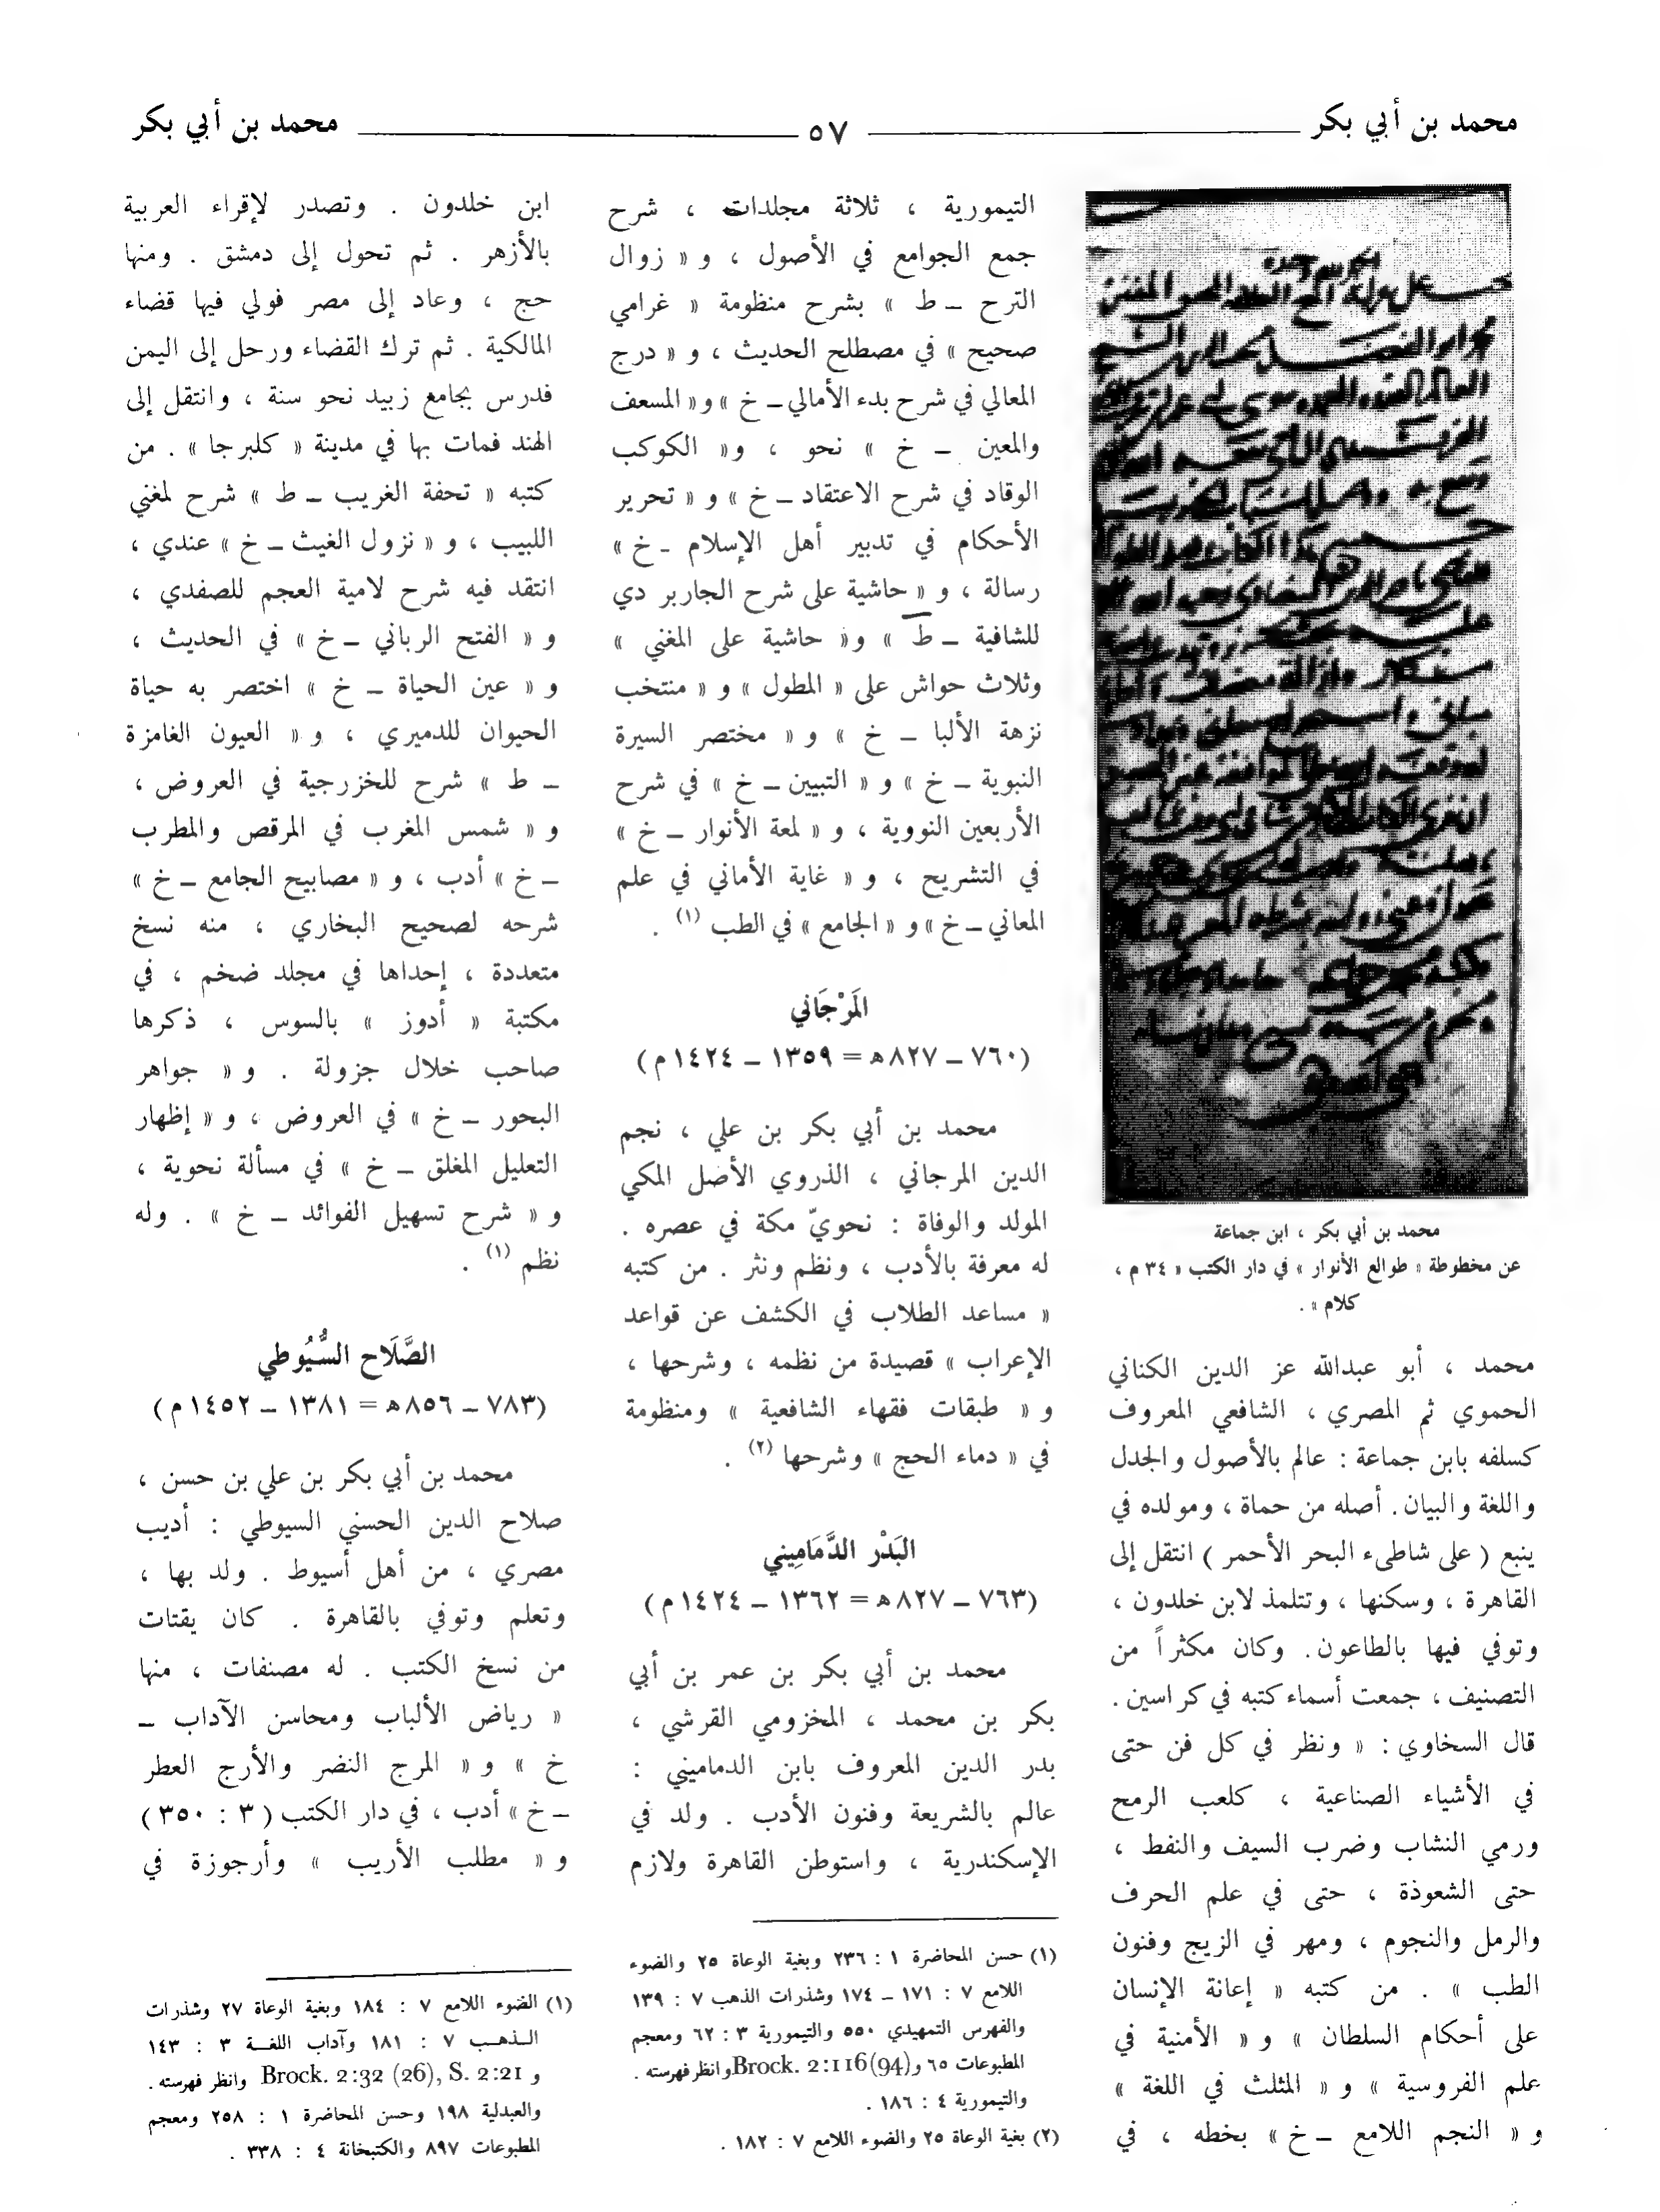 محمد بن أبي بكر ٥٧ محمد بن أبي بكر
محمد بن أبي بكر ، ابن جماعة
عن مخطوطة « طوالع الأنوار » في دار الكتب « ٣٤ م ،
كلام » .
محمد ، أبو عبدالله عز الدين الكناني
الحموي ثم المصري ، الشافعي المعروف
كسلفه بابن جماعة : عالم بالأصول والجدل
واللغة والبيان. أصله من حماة ، ومولده في
ينبع ( على شاطىء البحر الأحمر ) انتقل إلى
القاهرة ، وسكنها ، وتتلمذ لابن خلدون ،
وتوفي فيها بالطاعون. وكان مكثراً من
التصنيف ، جمعت أسماء كتبه في كراسين.
قال السخاوي : « ونظر في كل فن حتى
في الأشياء الصناعية ، كلعب الرمح
ورمي النشاب وضرب السيف والنفط ،
حتى الشعوذة ، حتى في علم الحرف
والرمل والنجوم ، ومهر في الزيج وفنون
الطب » . من كتبه « إعانة الإنسان
على أحكام السلطان » و « الأمنية في
علم الفروسية » و « المثلث في اللغة »
و « النجم اللامع ــ خ » بخطه ، في
التيمورية ، ثلاثة مجلدات ، شرح
جمع الجوامع في الأصول ، و « زوال
الترح ــ ط » بشرح منظومة « غرامي
صحيح » في مصطلح الحديث ، و « درج
المعالي في شرح بدء الأمالي ــ خ » و « المسعف
والمعين ــ خ » نحو ، و« الكوكب
الوقاد في شرح الاعتقاد ــ خ » و « تحرير
الأحكام في تدبير أهل الإسلام ـ خ »
رسالة ، و « حاشية على شرح الجاربر دي
للشافية ــ ط » و« حاشية على المغني »
وثلاث حواش على « المطول » و « منتخب
نزهة الألبا ــ خ » و « مختصر السيرة
النبوية ــ خ » و « التبيين ــ خ » في شرح
الأربعين النووية ، و « لمعة الأنوار ــ خ »
في التشريح ، و « غاية الأماني في علم
المعاني ــ خ » و « الجامع » في الطب (١) .
المَرْجَاني
(٧٦٠ ــ ٨٢٧ه = ١٣٥٩ ــ ١٤٢٤م)
محمد بن أبي بكر بن علي ، نجم
الدين المرجاني ، الذروي الأصل المكي
المولد والوفاة : نحويّ مكة في عصره .
له معرفة بالأدب ، ونظم ونثر . من كتبه
« مساعد الطلاب في الكشف عن قواعد
الإعراب » قصيدة من نظمه ، وشرحها ،
و « طبقات فقهاء الشافعية » ومنظومة
في « دماء الحج » وشرحها (٢) .
البَدْر الدَّمَامِيني
(٧٦٣ ــ ٨٢٧ه = ١٣٦٢ ــ ١٤٢٤م)
محمد بن أبي بكر بن عمر بن أبي
بكر بن محمد ، المخزومي القرشي ،
بدر الدين المعروف بابن الدماميني :
عالم بالشريعة وفنون الأدب . ولد في
الإسكندرية ، واستوطن القاهرة ولازم
(١) حسن المحاضرة ١ : ٢٣٦ وبغية الوعاة ٢٥ والضوء
اللامع ٧ : ١٧١ ــ ١٧٤ وشذرات الذهب ٧ : ١٣٩
والفهرس التمهيدي ٥٥٠ والتيمورية ٣ : ٦٢ ومعجم
المطبوعات ٦٥ و Brock. 2:116(94) وانظر فهرسته .
والتيمورية ٤ : ١٨٦ .
(٢) بغية الوعاة ٢٥ والضوء اللامع ٧ : ١٨٢ .
ابن خلدون . وتصدر لإقراء العربية
بالأزهر . ثم تحول إلى دمشق . ومنها
حج ، وعاد إلى مصر فولي فيها قضاء
المالكية . ثم ترك القضاء ورحل إلى اليمن
فدرس بجامع زبيد نحو سنة ، وانتقل إلى
الهند فمات بها في مدينة « كلبرجا » . من
كتبه « تحفة الغريب ــ ط » شرح لمغني
اللبيب ، و « نزول الغيث ــ خ » عندي ،
انتقد فيه شرح لامية العجم للصفدي ،
و « الفتح الرباني ــ خ » في الحديث ،
و « عين الحياة ــ خ » اختصر به حياة
الحيوان للدميري ، و « العيون الغامزة
ــ ط » شرح للخزرجية في العروض ،
و « شمس المغرب في المرقص والمطرب
ــ خ » أدب ، و « مصابيح الجامع ــ خ »
شرحه لصحيح البخاري ، منه نسخ
متعددة ، إحداها في مجلد ضخم ، في
مكتبة « أدوز » بالسوس ، ذكرها
صاحب خلال جزولة . و « جواهر
البحور ــ خ » في العروض ، و « إظهار
التعليل المغلق ــ خ » في مسألة نحوية ،
و « شرح تسهيل الفوائد ــ خ » . وله
نظم (١) .
الصَّلَاح السُّيُوطي
(٧٨٣ ــ ٨٥٦ه = ١٣٨١ ــ ١٤٥٢م)
محمد بن أبي بكر بن علي بن حسن ،
صلاح الدين الحسني السيوطي : أديب
مصري ، من أهل أسيوط . ولد بها ،
وتعلم وتوفي بالقاهرة . كان يقتات
من نسخ الكتب . له مصنفات ، منها
« رياض الألباب ومحاسن الآداب ــ
خ » و « المرج النضر والأرج العطر
ــ خ » أدب ، في دار الكتب ( ٣ : ٣٥٠ )
و « مطلب الأريب » وأرجوزة في
(١) الضوء اللامع ٧ : ١٨٤ وبغية الوعاة ٢٧ وشذرات
الذهب ٧ : ١٨١ وآداب اللغة ٣ : ١٤٣
و Brock. 2:32 (26), S. 2:21 وانظر فهرسته .
والعبدلية ١٩٨ وحسن المحاضرة ١ : ٢٥٨ ومعجم
المطبوعات ٨٩٧ والكتبخانة ٤ : ٣٣٨ .